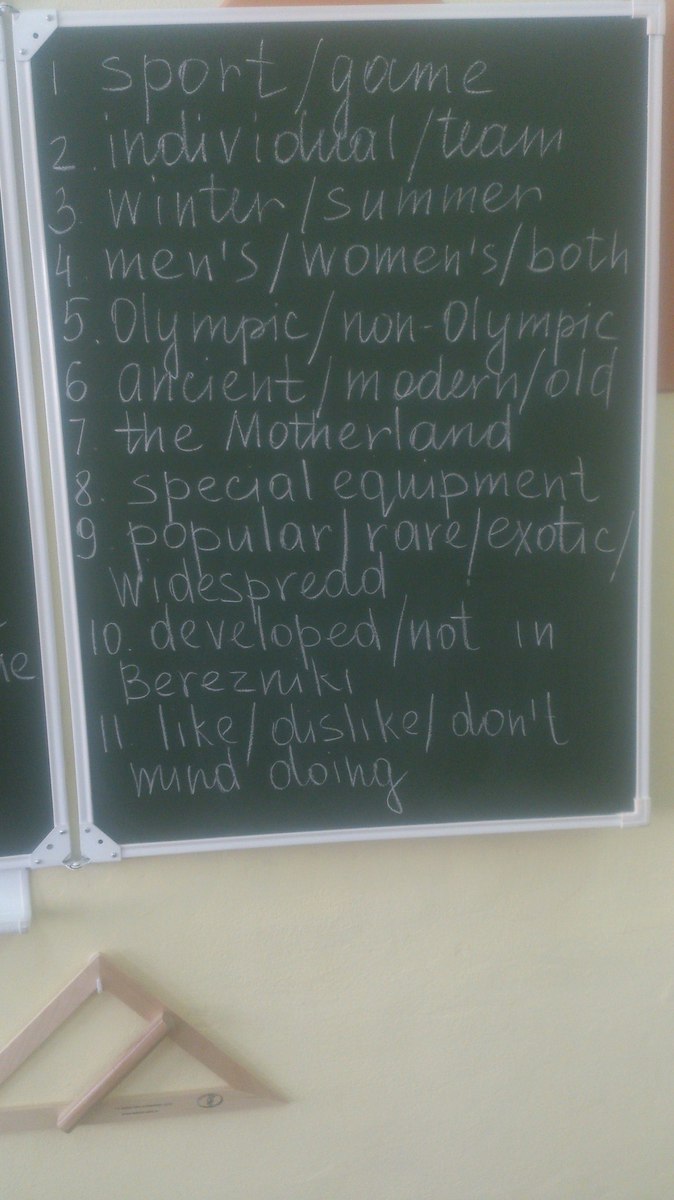 1 sport/game
2. individual/team
3. winter/summer
4. men's/women's/both
5. Olympic/non-Olympic
6 ancient/modern/old
7. the Motherland
8. special equipment
9 popular/rare/exotic/
widespread
10. developed/not in
Berezniki
11. like/dislike/don't
mind doing